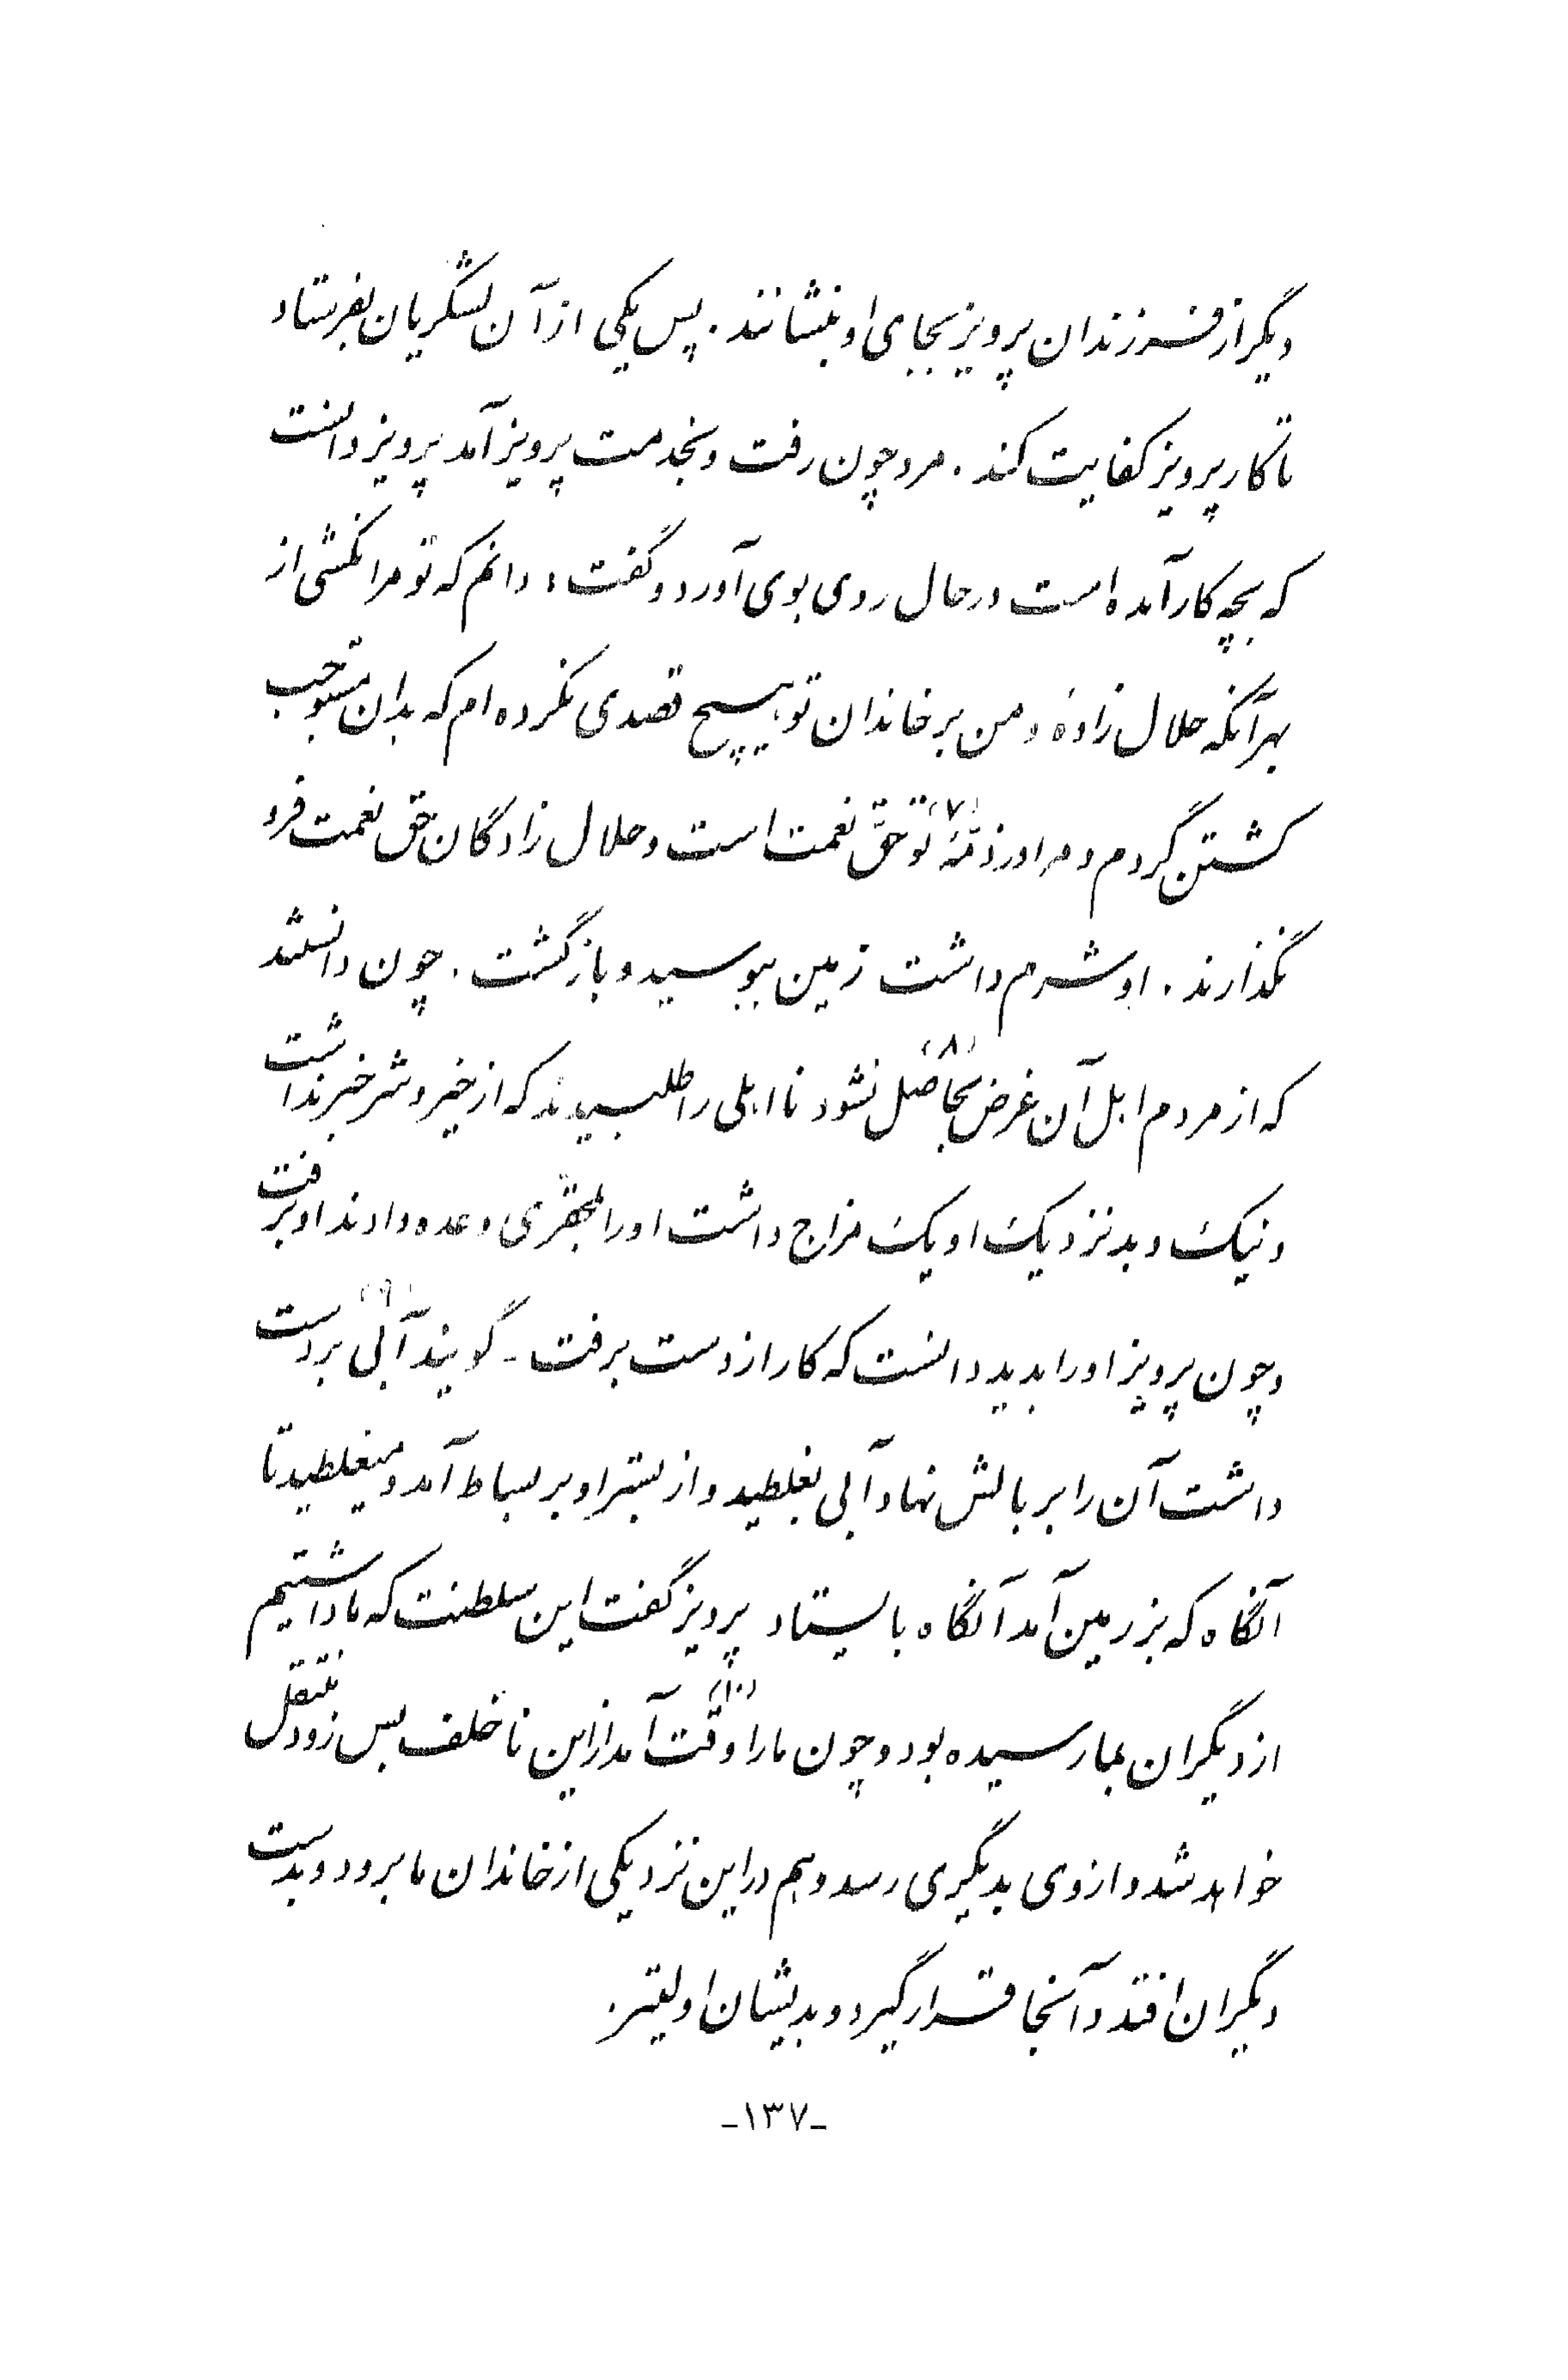 دیگر از فرزندان پرویز بجای او بنشانند. پس یکی از آن لشگریان بفرستاد
تا کار پرویز کفایت کند. مرد چون رفت و بخدمت پرویز آمد پرویز دانست
که بچه کار آمده است در حال روی بوی آورد و گفت: دانم که تو مرا نکشی از
بهر آنکه حلال زادهٔ و من بر خاندان تو بهیچ قصدی نکرده ام که بدان مستوجب
کشتن گردم و مرا در ذمّهٔ (۷) تو حقّ نعمت است و حلال زادگان حق نعمت فرو
نگذارند. او شرم داشت زمین ببوسید و باز گشت. چون دانستند
که از مردم اهل آن غرض بحاصل (۸) نشود نااهلی را طلبیدند که از خیر و شر خبر نداشت
و نیک و بد نزدیک او یک مزاج داشت او را بمحقّری وعده دادند او برفت
و چون پرویز او را بدید دانست که کار از دست برفت - گویند آبی (۹) بر دست
داشت آن را بر بالش نهاد آبی بغلطید و از بستر او بر بساط آمد و میغلطید تا
آنگاه که بر زمین آمد آنگاه بایستاد پرویز گفت این سلطنت که ما داشتیم
از دیگران بما رسیده بود و چون ما را وقت (۱۰) آمد از این ناخلف بس زود منتقل
خواهد شد و از وی بدیگری رسد و هم در این نزدیکی از خاندان ما برود و بدست
دیگران افتد و آنجا قرار گیرد و بدیشان اولیتر.
-۱۳۷-